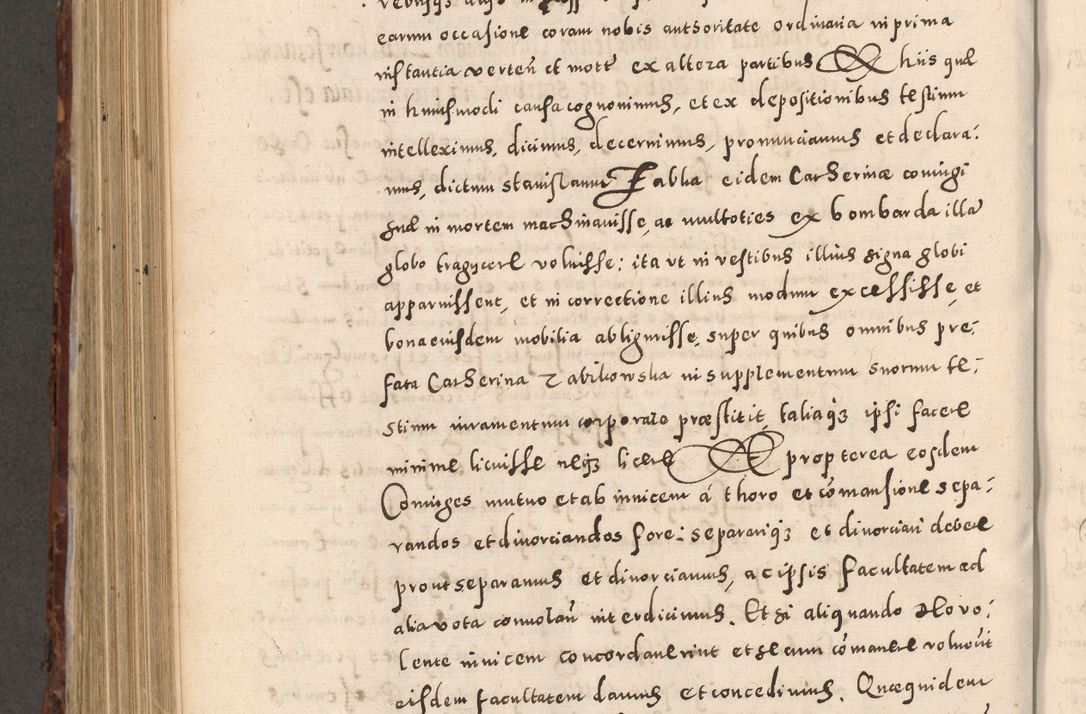 earum occasione coram nobis authoritate ordinaria in prima
instantia verteñ et mott ex altera partibus Ex hiis quæ
in huiusmodi causa cognovimus, et ex depositionibus testium
intelleximus, dicimus, decernimus, pronunciamus et declara:
mus, dictum Stanislaum Fabha eidem Catherinæ coniugi
suæ in mortem machinavisse, ac multoties ex bombarda illã
globo tragycere voluisse; ita ut in vestibus illius signa globi
apparuissent, et in correctione illius modum excessisse, et
bona eiusdem mobilia abligurisse, super quibus omnibus pre:
fata Catherina Zabikowska in supplementum suorum te:
stium iuramentum corporale præstitit, taliaq3 ipsi facere
minime licuisse neq3 licere Et propterea eosdem
Coniuges mutuo et ab invicem á thoro et cõmansione sepa:
randos et divorciandos fore: separariq3 et divorciari debere
prout separamus et divorciamus, ac ipsis facultatem ad
alia vota convolañ interdicimus. Et si aliquando Deo vo:
lente invicem concordaverint et secum cõmanere voluerit
eisdem facultatem damus et concedimus. Quæquidem